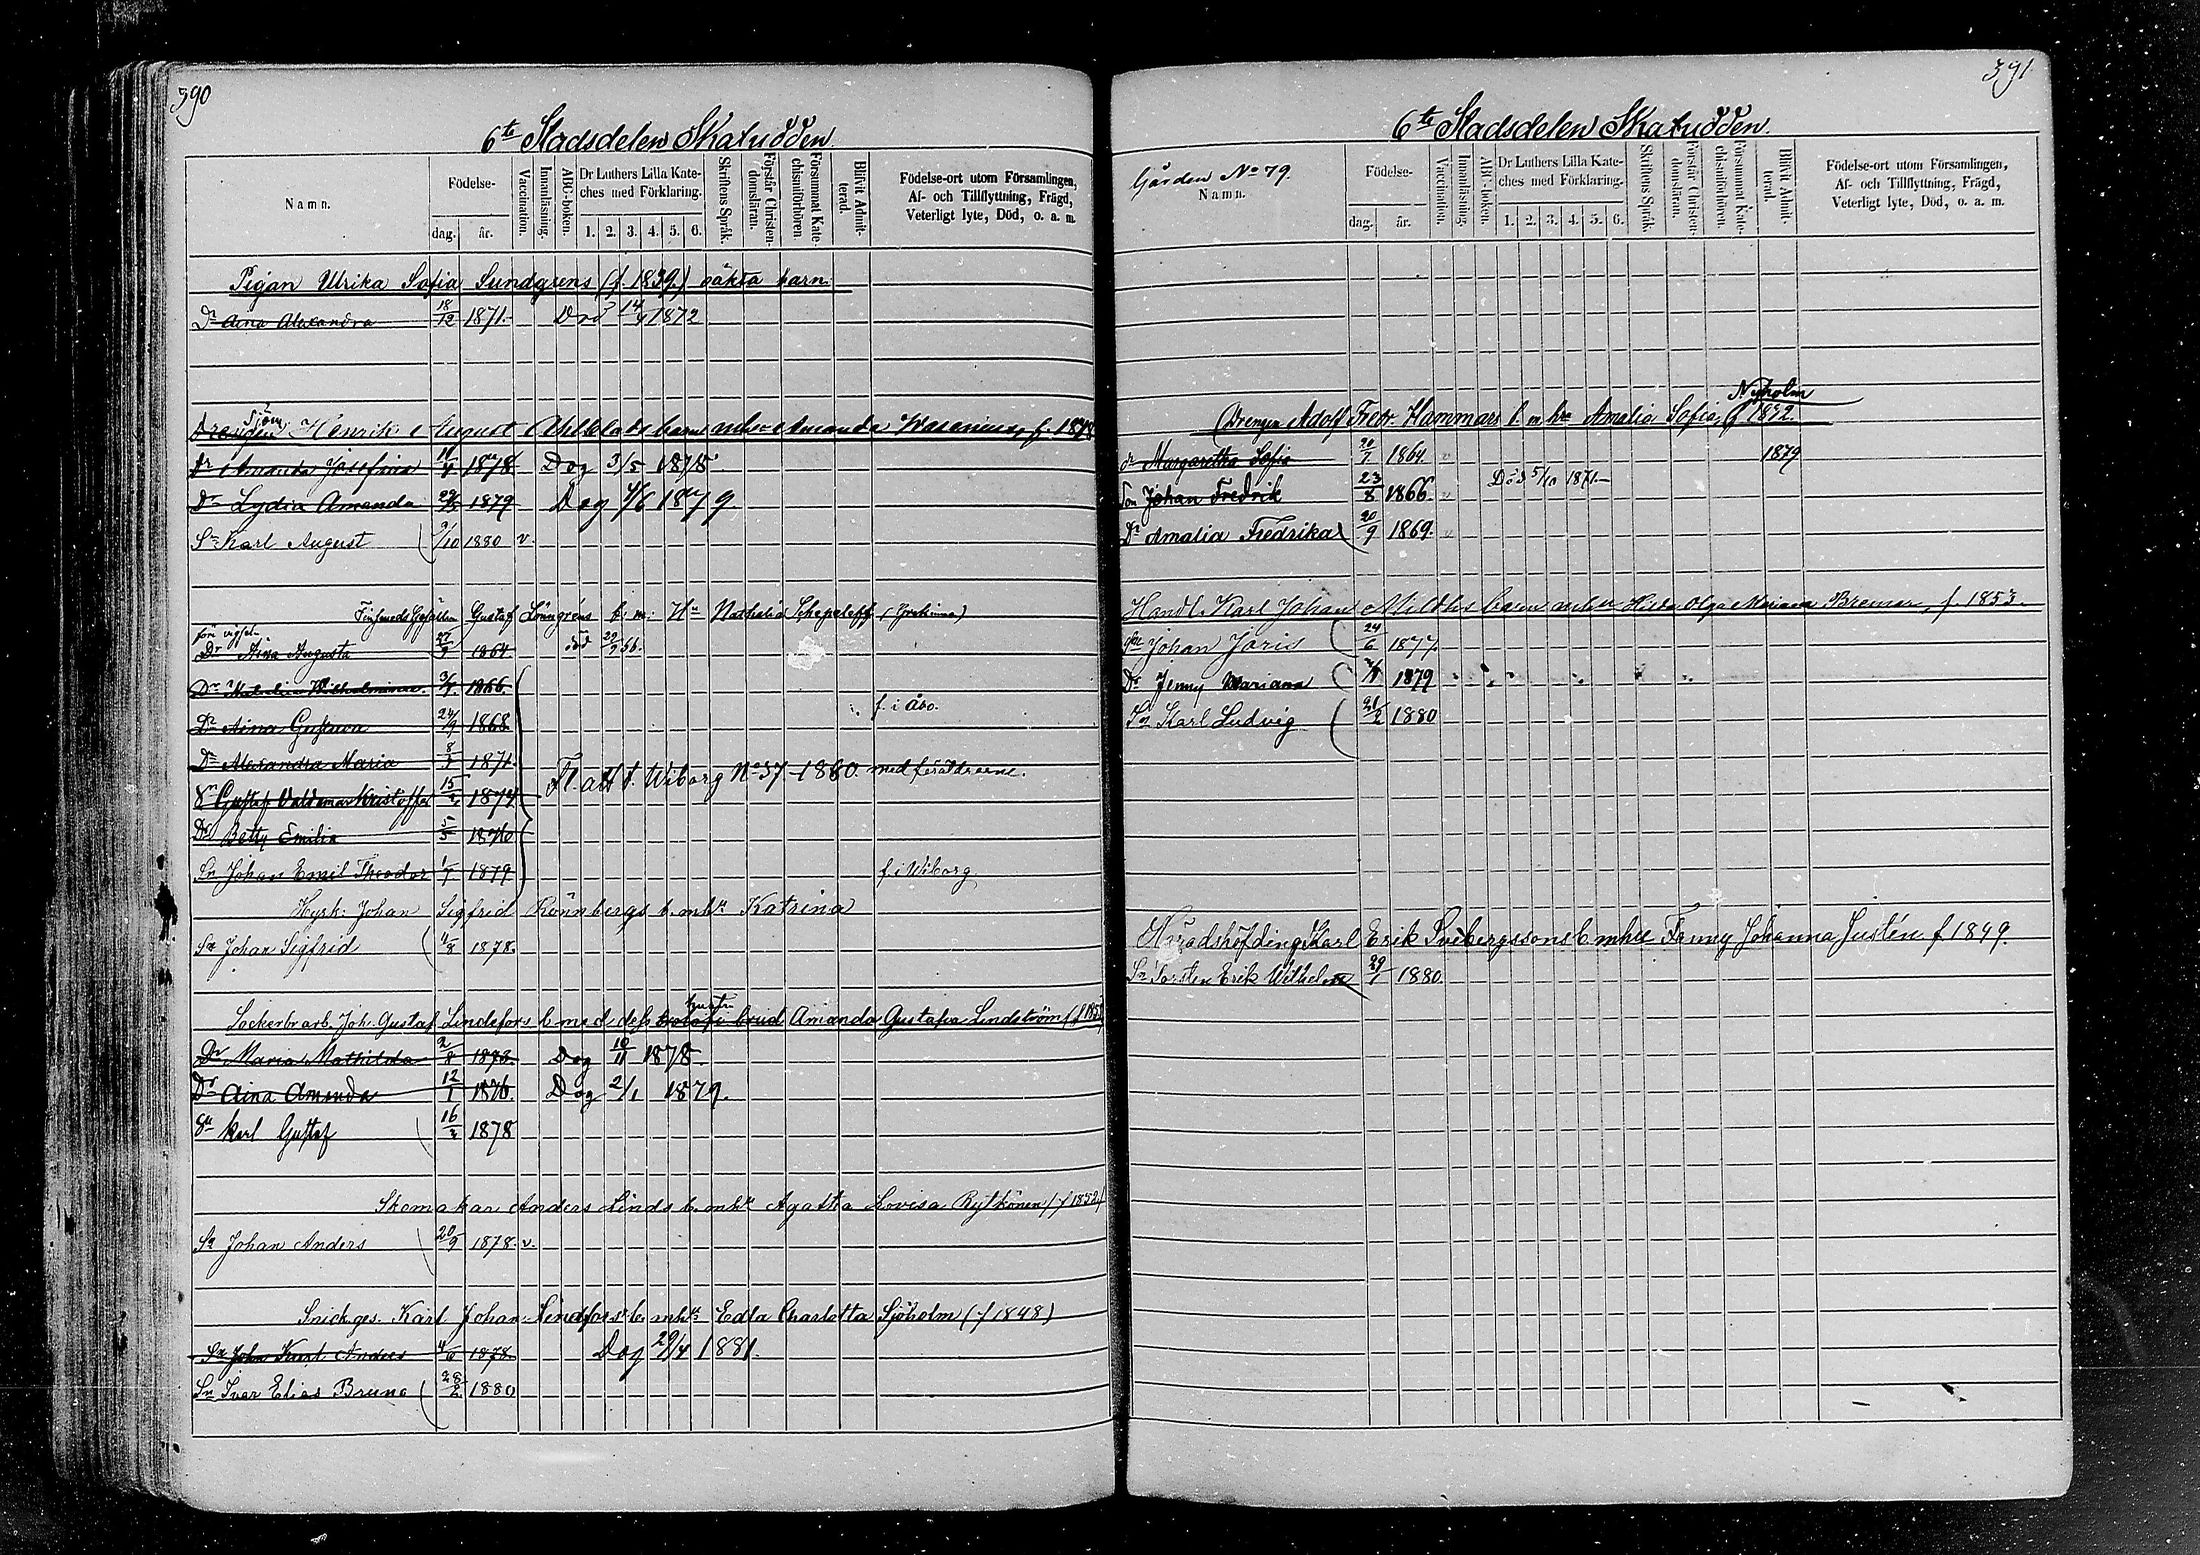 390
6te Stadsdelen Skatudden
Namn.
Födelse-
dag. år.
Vaccination.
Innanläsning.
ABC-boken.
Dr Luthers Lilla Kate-
ches med Förklaring.
1. 2. 3. 4. 5. 6.
Skriftens Språk.
Förstår Christen-
domsläran.
Försummat Kate-
chismiförhören
Blifvit Admit-
terad.
Födelse-ort utom Församlingen,
Af- och Tillflyttning, Frägd,
Veterligt lyte, Död, o. a. m.
Pigan Ulrika Sofia Sundgrens (f. 1839) oäkta barn.
Dr Aina Alexandra 18/12 1871. Död 14/4 1872
Sjöm.
Drengen Henrik August Ahlblads barn mhu Amanda Wasenius, f.
Dr Amanda Josefina 1878 Dog 3/5 1878
Dr Lydia Amanda 1879 Dog 4/6 1879.
Sn Karl August 9/10 1880 v.
Finsmeds Gesällen Gustaf Lönngréns b. m: Hu Nathalia
före vigseln
Dr Aina Augusta 1864 död 56.
Dr Wilhelmina 1866.
f. i Åbo.
Dr Aina Gustava 24/9 1868
Dr Alexandra Maria 1871.
Fl. att t. Wiborg No 37 1880. med föräldrarne.
Sn Gustaf Valdemar Kristoffer 1874
Dr Betty Emilia 5/5 1876
Sn Johan Emil Theodor 1/7 1879 f. i Wiborg
Hyrk: Johan Sigfrid Rönnbergs b. mhu Katrina
Sn Johan Sigfrid 1878.
hustru
Sockerbr arb. Joh. Gustaf Lindsfors b med dess trolofv. brud Amanda Gustafva Lindström
Dr Maria Mathilda 2/8 1873. Dog 10/11 1878.
Dr Aina Amanda 12/1 1876. Dog 2/1 1879.
Sn Karl Gustaf 1878
Skomakar Anders Linds b. mhu Agatha Lovisa Rytkönen (f 1852)
Sn Johan Anders 20/9 1878. v.
Snickges. Karl Johan Lindfors b. mhu Edla Charlotta Sjöholm (f 1848)
Sn John Kurt Anders 4/6 1878. Dog 29/4 1881.
Sn Ivar Elias Bruno 28/2 1880
391
6te Stadsdelen Skatudden.
Gården No 79.
Namn.
Födelse-
dag. år.
Vaccination.
Innanläsning.
ABC-boken.
Dr Luthers Lilla Kate-
ches med Förklaring.
1. 2. 3. 4. 5. 6.
Skriftens Språk.
Förstår Christen-
domsläran.
Försummat Kate-
chismiförhören.
Blifvit Admit-
terad.
Födelse-ort utom Församlingen,
Af- och Tillflyttning, Frägd,
Veterligt lyte, Död, o. a. m.
Nyholm
Drengen Adolf Fredr. Hammars b. m. hu Amalia Sofia, f
dr Margaretha Sofia 1864 1879
Son Johan Fredrik 23/8 1866. Död 5/10 1871.
Dr Amalia Fredrika 20/9 1869.
Handl. Karl Johan Mildhs barn mhu Hilda Olga Mariana Bremer, f. 1853.
Sn Johan Joris 24/6 1877.
Dr Jenny Mariana 1879
Sn Karl Ludvig 21/2 1880
Häradshöfding Karl Erik Svebergssons b mhu Fanny Johanna Justén f 1849.
Sn Torsten Erik Wilhelm 29/1 1880.